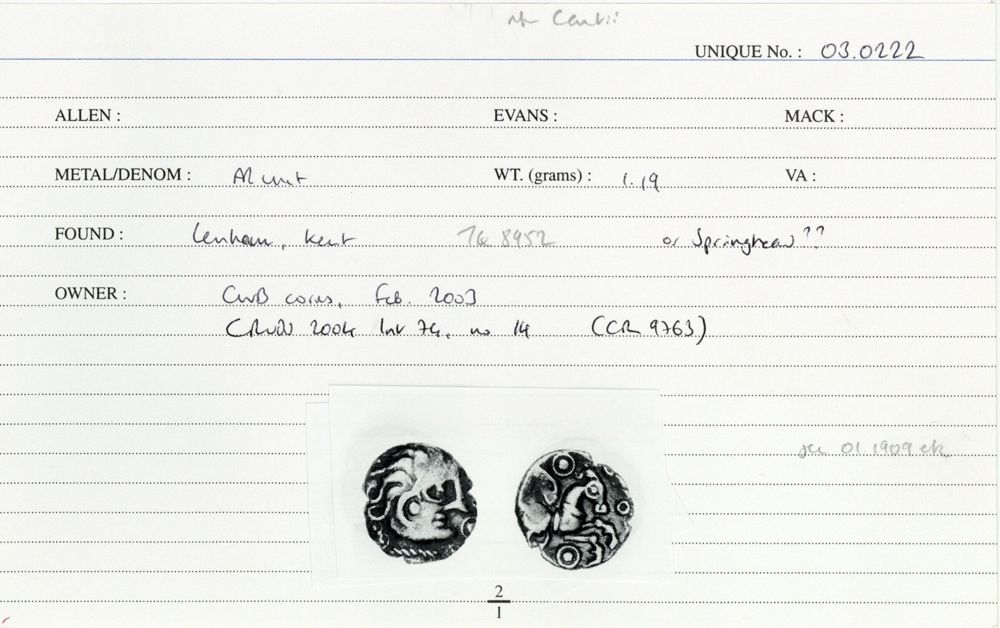 Cantii
UNIQUE No. : 03.0222
ALLEN : EVANS : MACK :
METAL/DENOM : AR unit WT. (grams) : 1.19 VA :
FOUND : Lenham, Kent TQ 8952 or Springhead ??
OWNER : CNB coins, Feb. 2003
2004 no 14 (CR 9763)
01.1909 etc
2
1